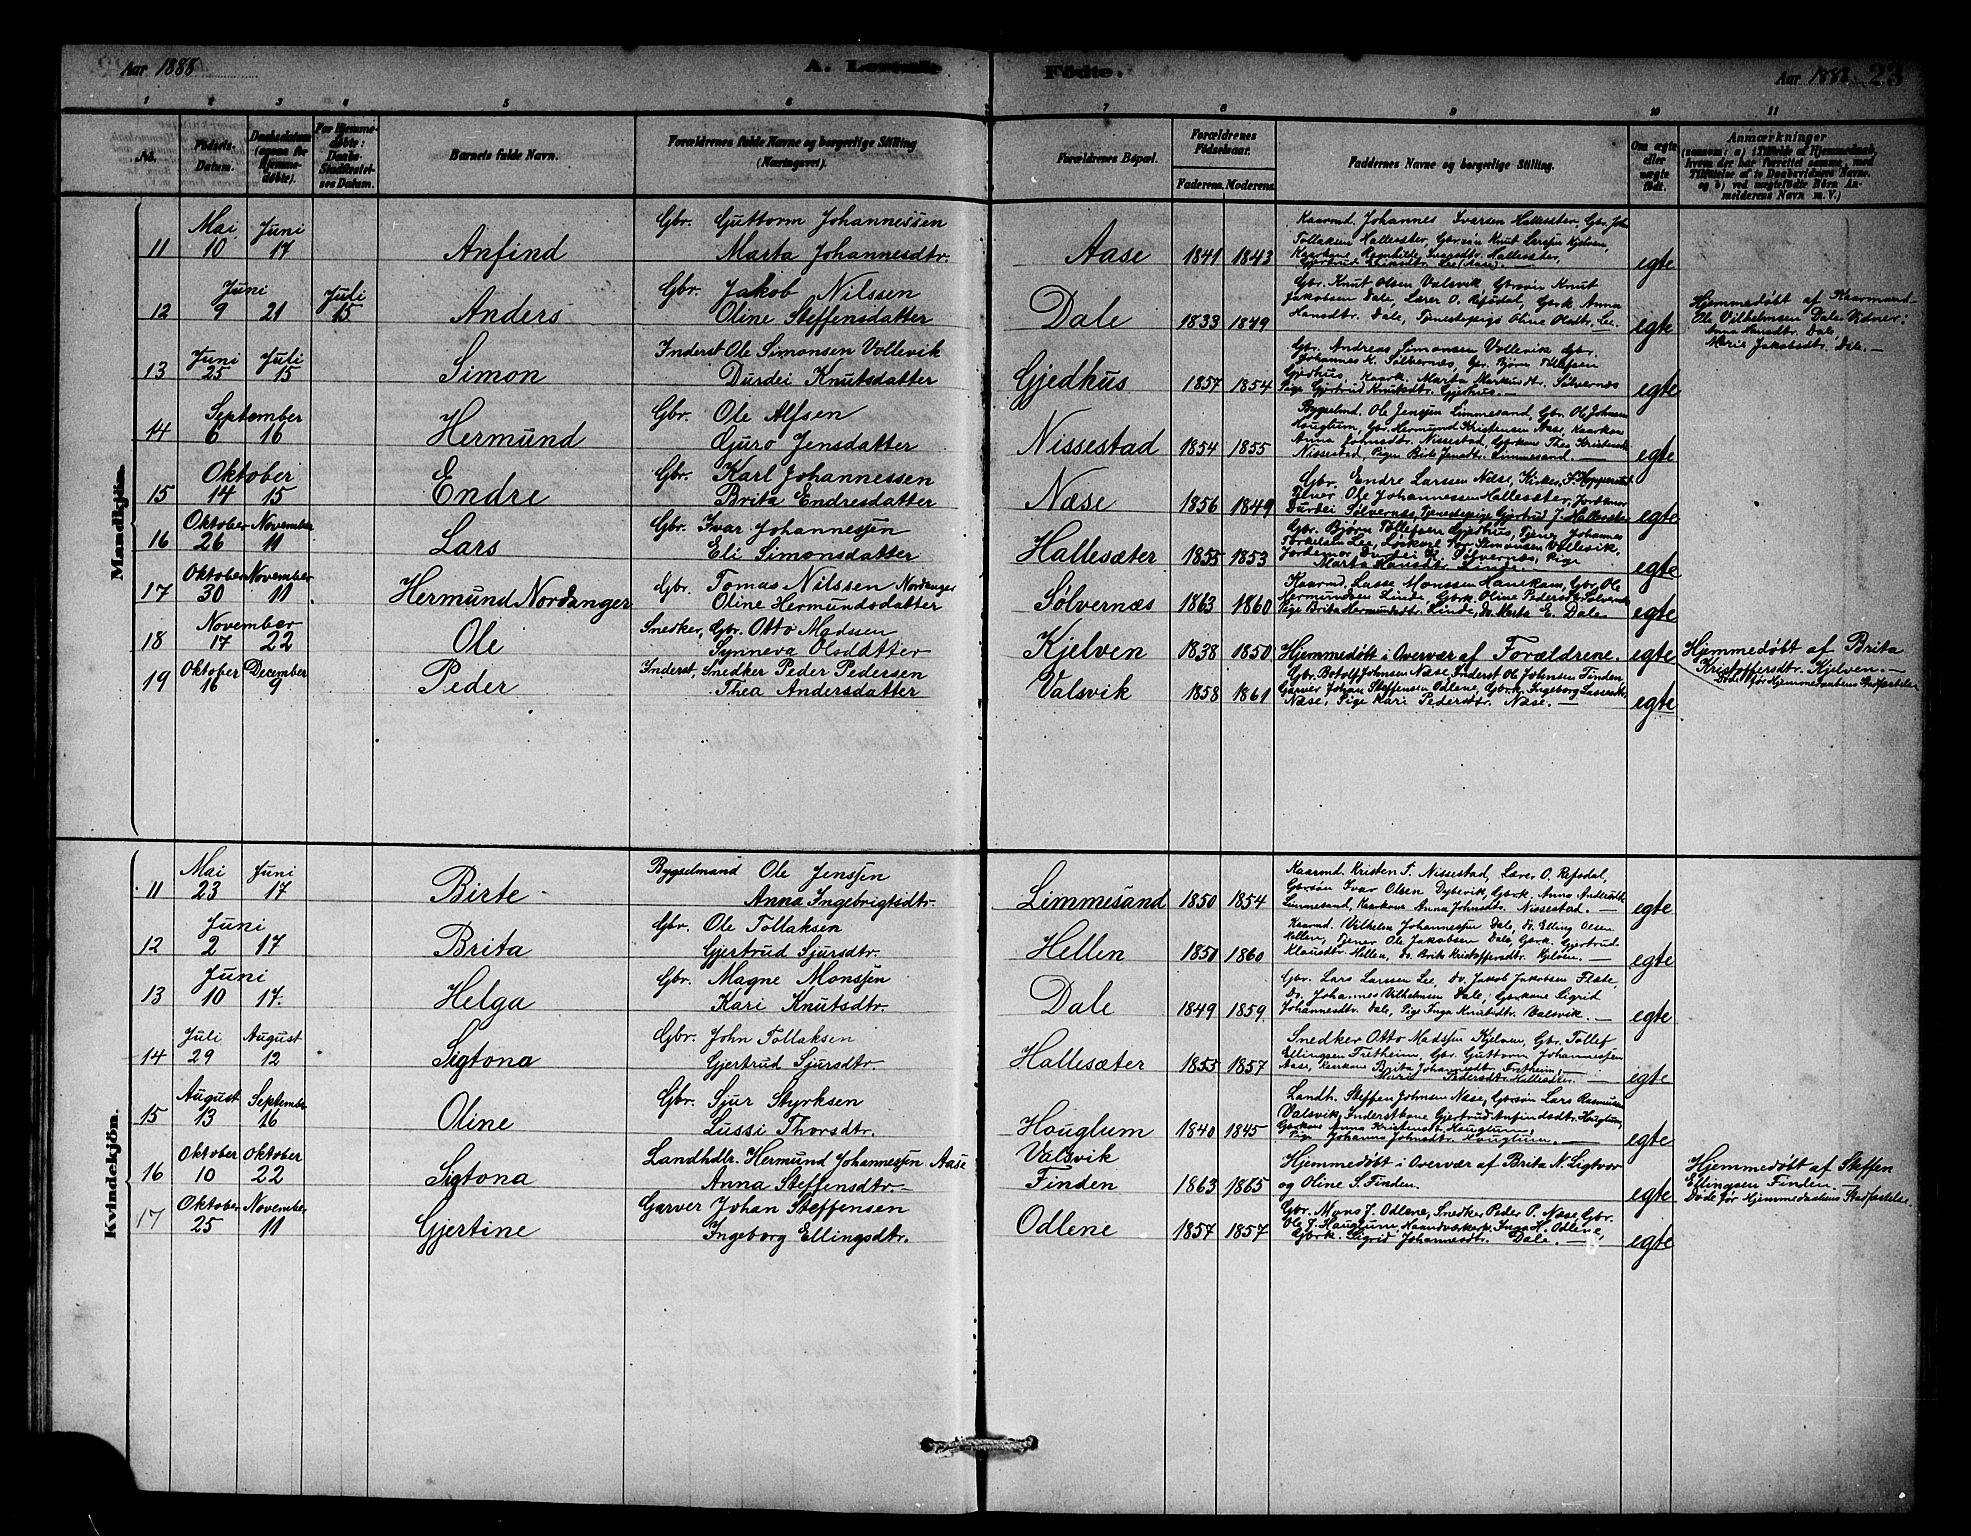 Aar 1888
A. Levende
Födte.
Aar 1888. 23
1 2 3 4 5 6 7 8 9 10 11
No.
Födsels-Datum.
Daabsdatum (ogsaa for Hjemme-döbte).
For Hjemme-döbte: Daabs-Stadfæstel-ses Datum.
Barnets fulde Navn.
Forældrenes fulde Navne og borgerlige Stilling (Næringsvei).
Forældrenes Bopæl.
Forældrenes Födselsaar.
Faderens. Moderens.
Faddernes Navne og borgerlige Stilling.
Om ægte eller uægte födt.
Anmærkninger
(saasom: a) i Tilfælde af Hjemmedaab, hvem der har forrettet samme, med Tilföielse af to Daabsvidners Navne, og b) ved uægtefödte Börn An-melderens Navn m. V.)
Mandkjön.
11 Mai 10 Juni 17 Anfind Gbr. Guttorm Johannessen
Marta Johannesdtr. Aase 1841 1843 egte
Kaarmd. Johannes Ivarsen Hallesæter, Gbr. John
Tollaksen Hallesæter, Gbrsön Knut Larssen Kjelven,
Kaarkone Ragnhilde Ivarsdtr. Hallesæter,
12 Juni 9 21 Juli 15 Anders Gbr. Jakob Nilssen
Oline Steffensdatter Dale 1833 1849 egte
Gbr. Knut Olsen Valsvik, Gbrsön Knut
Jakobsen Dale, Lærer O. Refsdal, Gbrk. Anna
Hansdtr. Dale, Tjenestepige Oline Olsdtr. Lee.
Hjemmedøbt af Kaarmand
Ole Vilhelmsen Dale Vidner:
Anna Hansdtr. Dale
Marie Jakobsdtr. Dale.
13 Juni 25 Juli 15 Simon Inderst Ole Simonsen Vollevik
Durdei Knutsdatter Gjedhus 1857 1854 egte
Gbr. Andreas Simonsen Vollevik, Gbr.
Johannes K. Sølvernæs, Gbr. Bjørn Tollefsen
Gjedhus, Kaark. Marta Markusdtr. Sølvernæs
Pige Gjertrud Knutsdtr. Gjedhus.
14 September 6 16 Hermund Gbr. Ole Alfsen
Guro Jensdatter Nissestad 1854 1855 egte
Bygselmd. Ole Jenssen Limmesand, Gbr. Ole Johnsen
Houglum, Gbr. Hermund Kristensen Aase, Kaarkone
Anna Johnsdtr. Nissestad, Gbrkone Thea Kristensdtr
Nissestad, Pige Brit Jensdtr. Limmesand.
15 Oktober 14 15 Endre Gbr. Karl Johannessen
Brita Endresdatter Næse 1856 1849 egte
Gbr. Endre Larssen Næse, Kirkes.
Tjener Ole Johannessen Hallesæter, Jordmor
Durdei Sølvernæs, Tjenestepige Gjertrud J. Hallesæter
16 Oktober 26 November 11 Lars Gbr. Ivar Johannessen
Eli Simonsdatter Hallesæter 1855 1853 egte
Gbr. Bjørn Tollefsen Gjedhus, Tjener Johannes
Torkelsen Lee, Simonsen Vollevik,
Jordemor Durdei K. Sølvernæs, Pige
Marta Hansdtr. Linde.
17 Oktober 30 November 11 Hermund Nordanger Gbr. Tomas Nilssen Nordanger
Oline Hermundsdatter Sølvernæs 1863 1860 egte
Kaarmd. Lasse Monssen Hanekam, Gbr. Ole
Hermundsen Linde, Gbrk. Oline Pedersdtr. Sølvernæs
Pige Brita Hermundsdtr. Linde, do. Marta E. Dale.
18 November 17 22 Ole Snedker, Gbr. Otto Madssen
Synneva Olsdatter Kjelven 1838 1850 egte
Hjemmedøbt i Overvær af Forældrene.
Hjemmedøbt af Brita
Kristoffersdtr. Kjelven.
Død før Hjemmedaabens Stadfæstelse
19 Oktober 16 December 9 Peder Inderst, Snedker Peder Pedersen
Thea Andersdatter Valsvik 1858 1861 egte
Gbr. Botolf Johnsen Næse, Inderst Ole Johnsen Finden
Garver Johan Steffensen Odlene, Gbrk. Ingeborg Lassesdtr.
Næse, Pige Kari Pedersdtr. Næse.
Kvindekjön.
11 Mai 23 Juni 17 Birte Bygselmand Ole Jenssen
Anna Ingebrigtsdtr. Limmesand 1850 1854 egte
Kaarmd. Kristen T. Nissestad, Lærer O. Refsdal,
Gbrsön Ivar Olsen Dybevik, Gbrk. Anna Andersdtr.
Limmesand, Kaarkone Anna Johnsdtr. Nissestad.
12 Juni 2 17 Brita Gbr. Ole Tollaksen
Gjertrud Sjursdtr. Hellen 1850 1860 egte
Kaarmd. Vilhelm Johannessen Dale, do. Elling Olsen
Hellen, Tjener Ole Jakobsen Dale, Gbrk. Gjertrud
Klausdtr. Hellen, do. Brita Kristoffersdtr. Kjelven.
13 Juni 10 17. Helga Gbr. Magne Monssen
Kari Knutsdtr. Dale 1849 1859 egte
Gbr. Lars Larssen Lee, do. Jakob Jakobsen Flete,
do. Johannes Vilhelmsen Dale, Gbrkone Sigrid
Johannesdtr. Dale, Pige Inga Knutsdtr. Valsvik.
14 Juli 29 August 12 Sigtona Gbr. John Tollaksen
Gjertrud Sjursdtr. Hallesæter 1855 1857 egte
Snedker Otto Madssen Kjelven, Gbr. Tollef
Ellingsen Fretheim, Gbr. Guttorm Johannessen
Aase, Kaarkone Brita Johannesdtr. Fretheim,
Marie Pedersdtr. Hallesæter.
15 August 13 September 16 Oline Gbr. Sjur Styrksen
Lussi Thorsdtr. Houglum 1840 1845 egte
Landh. Steffen Johnsen Næse, Gbrsön Lars Rasmussen
Valsvik, Inderstkone Gjertrud Anfindsdtr. Houglum,
Gbrkone Anna Kristensdtr. Houglum,
Pige Johanna Johnsdtr. Houglum.
16 Oktober 10 Oktober 22 Sigtona Landhdlr. Hermund Johannessen Aase
Anna Steffensdtr. Valsvik
Finden 1863 1865 egte
Hjemmedøbt i Overvær af Brita N. Ligtvor
og Oline S. Finden.
Hjemmedøbt af Steffen
Ellingsen Finden.
Døde før Hjemmedaabens Stadfæstelse
17 Oktober 25 November 11 Gjertine Garver Johan Steffensen
Ingeborg Ellingsdtr. Odlene 1857 1857 egte
Gbr. Mons J. Odlene, Snedker Peder P. Næse, Gbr.
Ole J. Hauglum, Haandværkerk. Inga H. Odlene,
Gbrk. Sigrid Johannesdtr. Dale.